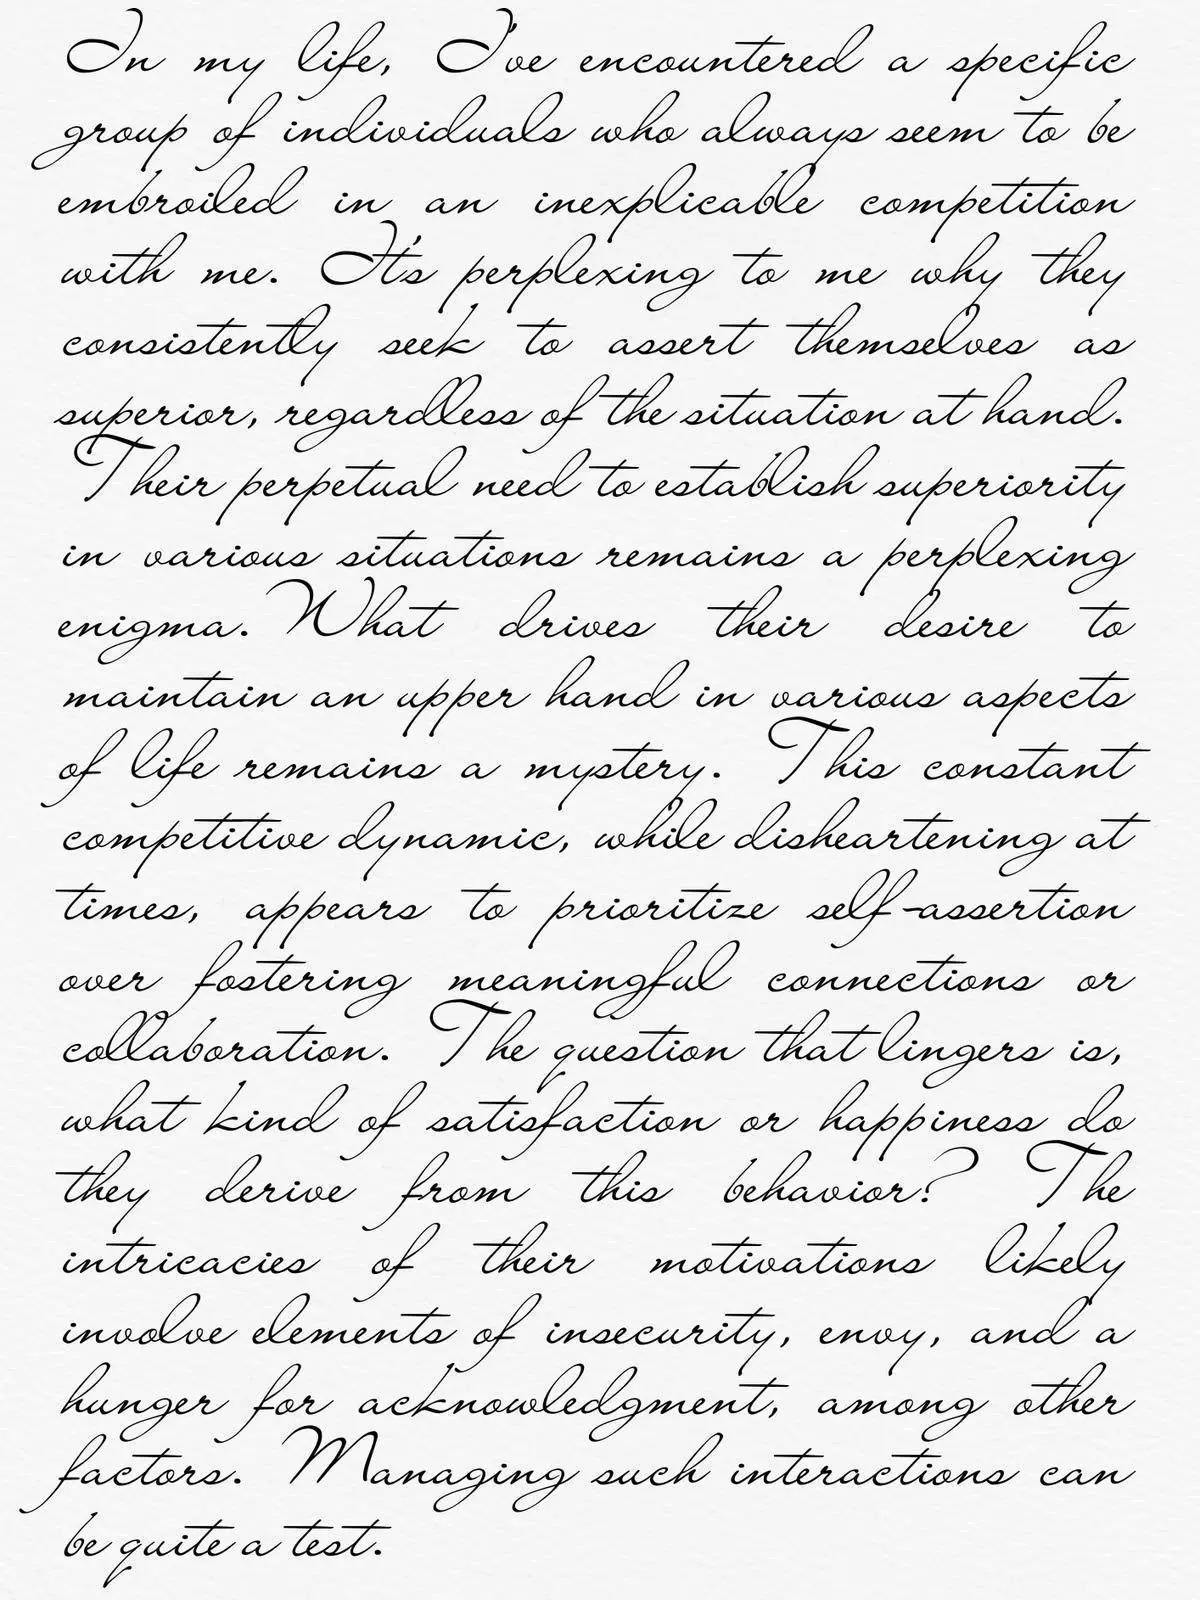 In my life, I've encountered a specific
group of individuals who always seem to be
embroiled in an inexplicable competition
with me. It's perplexing to me why they
consistently seek to assert themselves as
superior, regardless of the situation at hand.
Their perpetual need to establish superiority
in various situations remains a perplexing
enigma. What drives their desire to
maintain an upper hand in various aspects
of life remains a mystery. This constant
competitive dynamic, while disheartening at
times, appears to prioritize self-assertion
over fostering meaningful connections or
collaboration. The question that lingers is,
what kind of satisfaction or happiness do
they derive from this behavior? The
intricacies of their motivations likely
involve elements of insecurity, envy, and a
hunger for acknowledgment, among other
factors. Managing such interactions can
be quite a test.